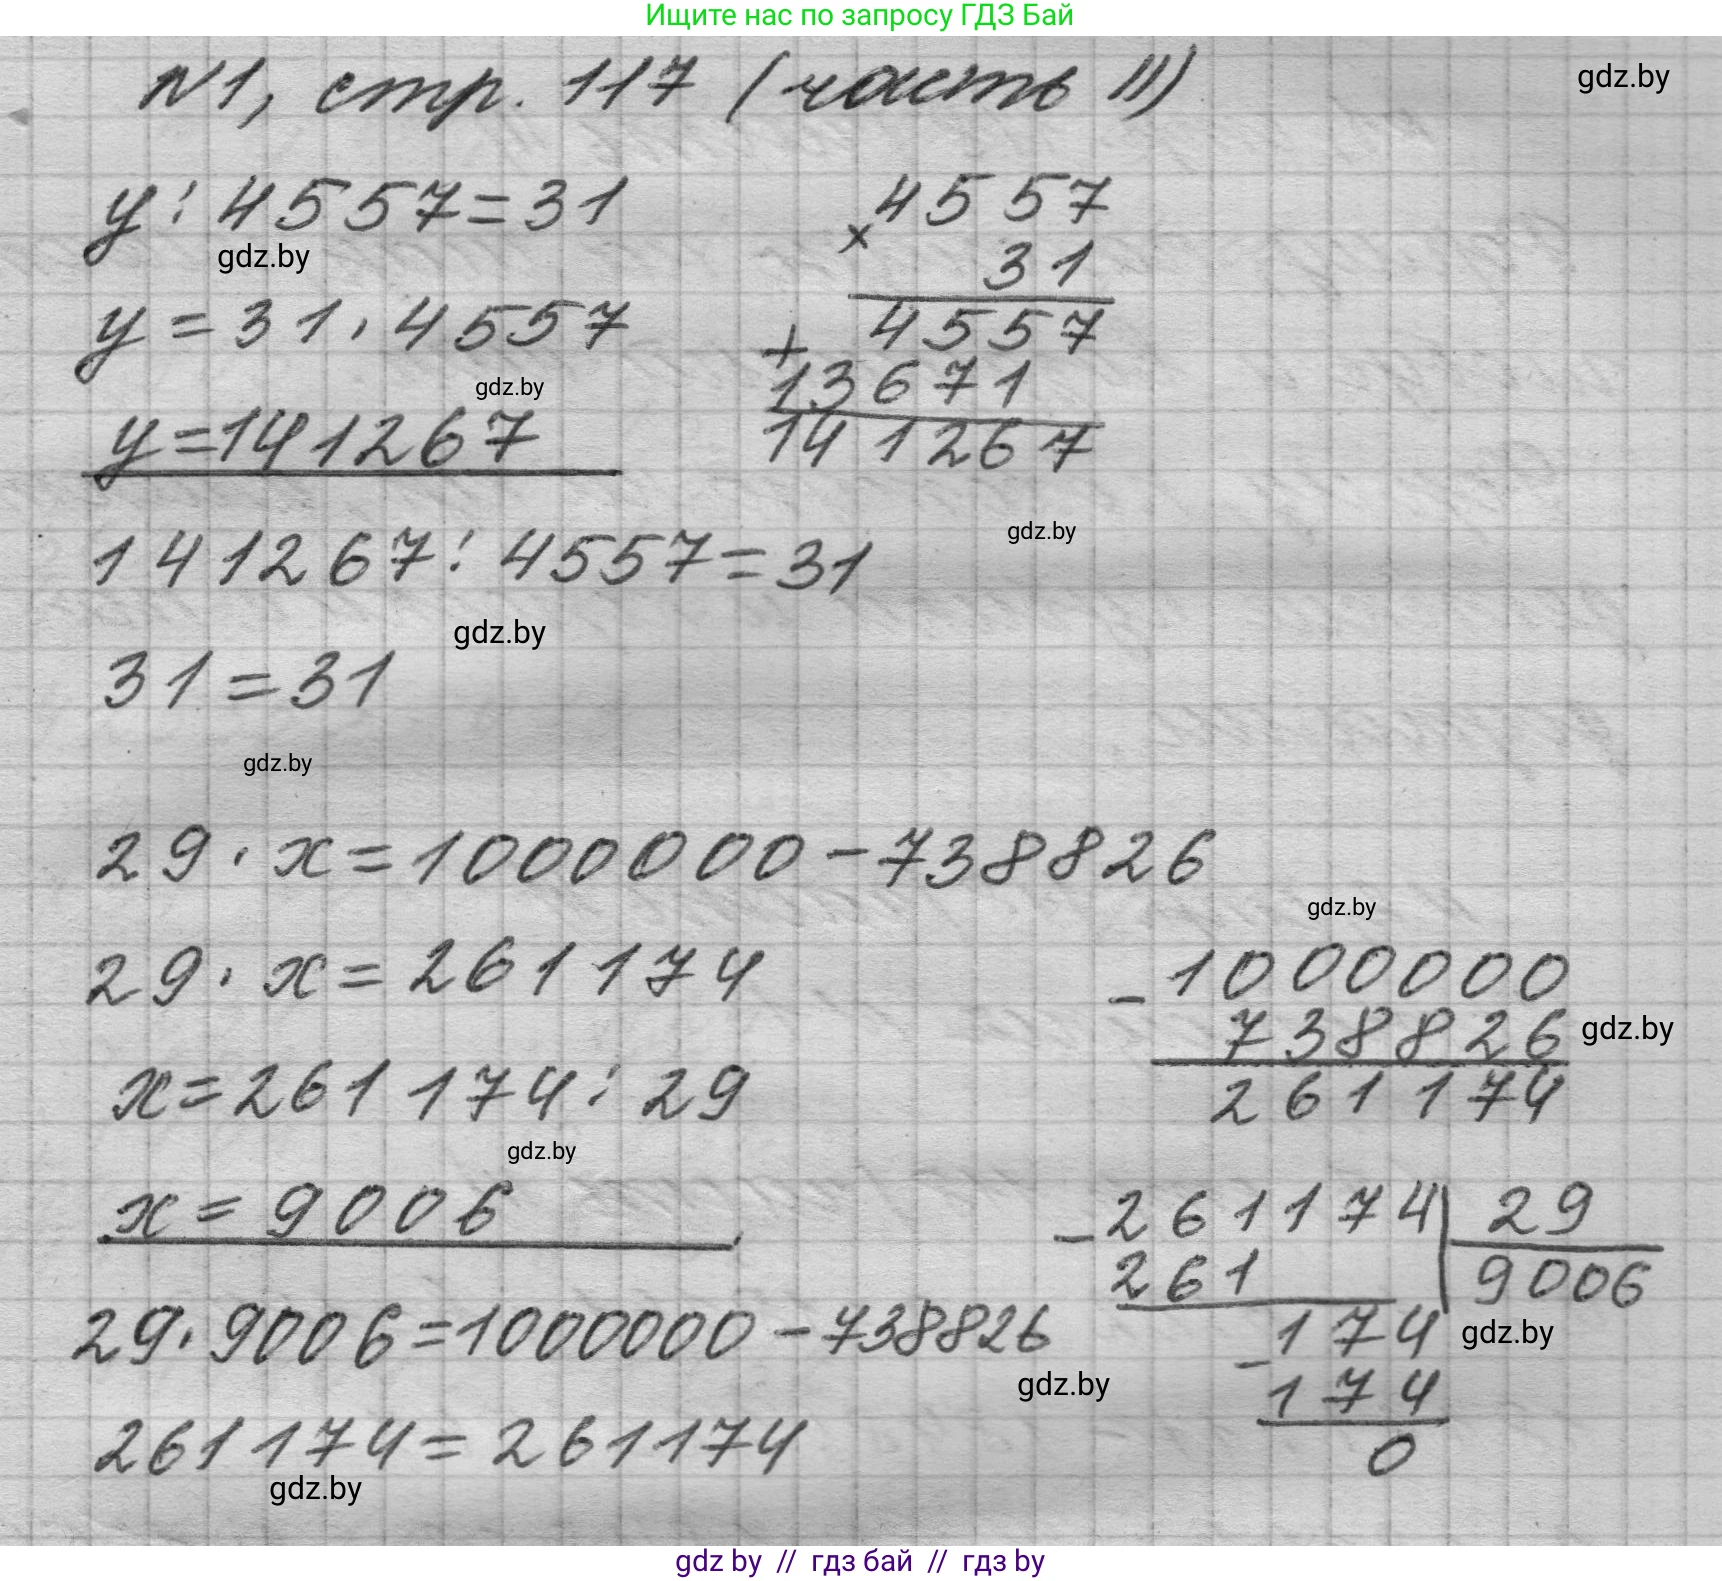 Ищите нас по запросу ГДЗ Бай
N1, стр. 117 (часть II)
gdz.by
y : 4557 = 31
gdz.by
y = 31 · 4557
gdz.by
y = 141267
4557
×
31
4557
+
13671
141267
gdz.by
141267 : 4557 = 31
gdz.by
31 = 31
gdz.by
29 · x = 1000000 - 738826
gdz.by
29 · x = 261174
x = 261174 : 29
gdz.by
x = 9006
- 1000000
738826
gdz.by
261174
- 261174 | 29
261 9006
174
gdz.by
-
174
0
29 · 9006 = 1000000 - 738826
gdz.by
261174 = 261174
gdz.by
gdz by // гдз бай // гдз by